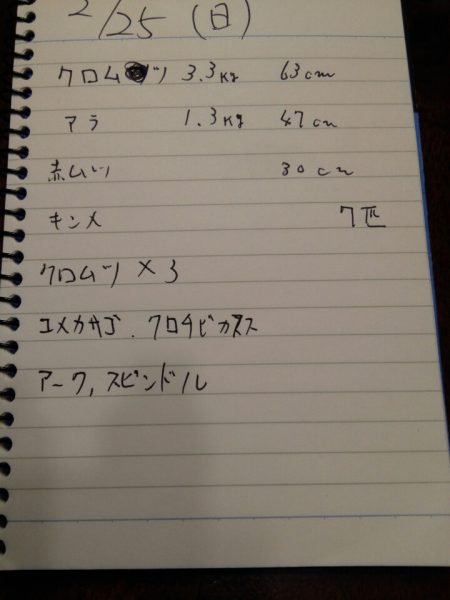 2/25 (日)
クロムツ 3.3kg 63cm
アラ 1.3kg 47cm
赤ムツ 30cm
キンメ 7匹
クロムツ×3
ユメカサゴ. クロシビカマス
アーク, スピンドル